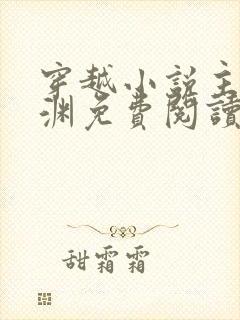 穿越小說主
淵免費閱讀
甜霜霜